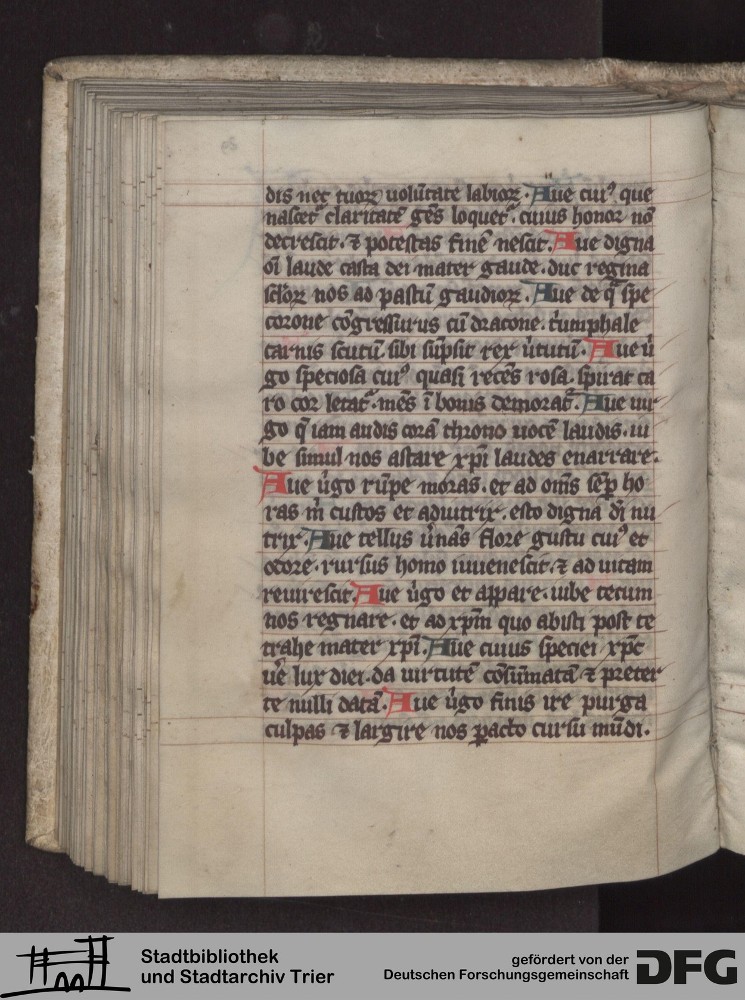 dis nec tuoꝝ uolūtate labioꝝ. Aue cuiꝰ que
nascet᷑ claritatē gēs loquet᷑. cuius honor nō
decrescit. ⁊ potestas finē nescit. Aue digna
om̄i laude casta dei mater gaude. duc regina
sc̄oꝝ nos ad pastū gaudioꝝ. Aue de qͣ spe
corone cōgressurus cū dracone. triumphale
carnis scutū. sibi sūpsit rex u̓tutū. Aue u̓
go speciosa cuiꝰ quasi recēs rosa. spirat ca
ro cor letat᷑. mēs ī bonis demorat᷑. Aue uir
go q̄ iam audis corā throno uocē laudis. iu
be simul nos astare xp̄i laudes enarrare.
Aue u̓go rūpe moras. et ad om̄s sēꝑ ho
ras m̓ custos et adiutrix. esto digna dn̄i nu
trix. Aue tellus u̓nās flore gustu cuiꝰ et
odore. rursus homo iuuenescit. ⁊ ad uitam
reuirescit. Aue u̓go et appare. iube tecum
nos regnare. et ad xp̄m quo abisti post te
trahe mater xp̄i. Aue cuius speciei xp̄c
ue̓ lux diei. da uirtutē cōsūmatā ⁊ preter
te nulli datā. Aue u̓go finis ire purga
culpas ⁊ largire nos ꝑacto cursu mūdi.
Stadtbibliothek
und Stadtarchiv Trier
gefördert von der
Deutschen Forschungsgemeinschaft
DFG